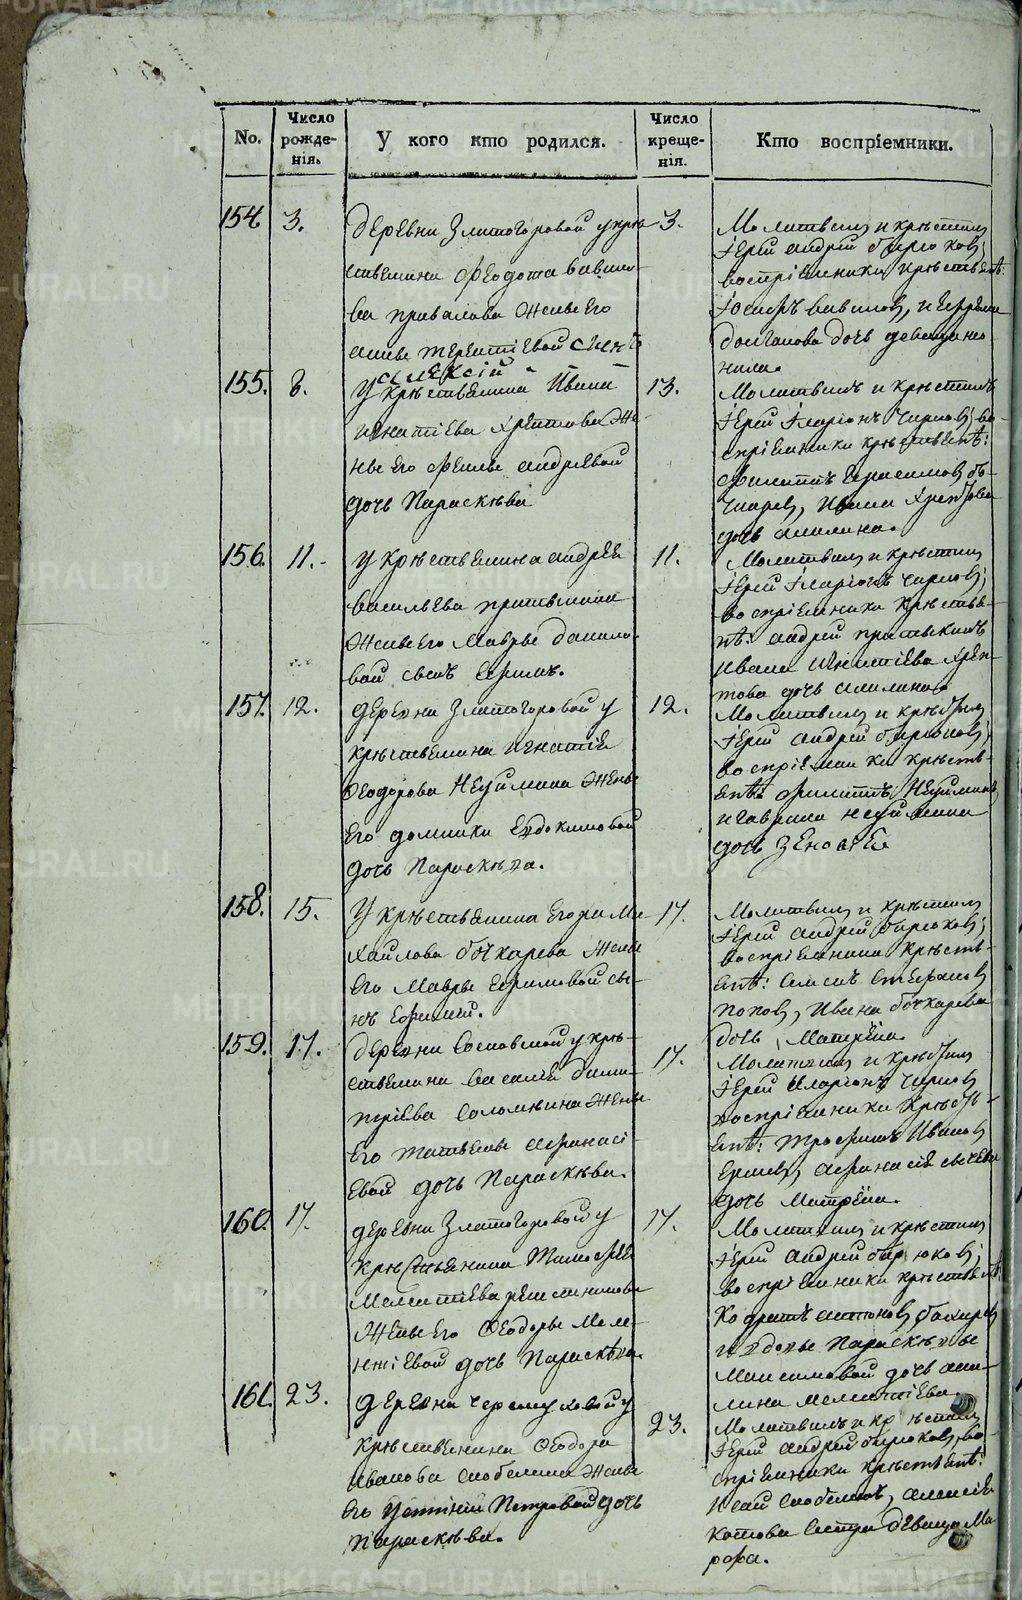 No.
Число рожде-нія.
У кого кто родился.
Число креще-нія.
Кто воспріемники.
154
3.
деревни Златогоровой у крѣ
стьянина Феодота Вавило-
ва Привалова жены его
Анны Терентіевой сынъ
Алексій
3.
Молитвилъ и крѣстилъ
Іерей Андрей Бирюковъ;
воспріемники крѣстьян:
Іосифъ Вавиловъ, и Ефрема
Долганова дочь девица не
нила.
155.
8.
У крѣстьянина Ивана
Игнатіева Хрептова же-
ны его Феклы Андреевой
дочь Параскѣва
13.
Молитвилъ и крѣстилъ
Іерей Іларіонъ Чирковъ; во-
спріемники крѣстьянѣ:
Филиппъ Герасимовъ Бо-
чкаревъ, Ивана Хрептова
дочь Акилина.
156.
11.
У крѣстьянина Андрея
Васильева
жены его Мавры Данило-
вой сынъ Ефимъ.
11.
Молитвилъ и крѣстилъ
Іерей Іларіонъ Чирковъ;
воспріемники крѣстья-
нѣ: Андрей
Ивана Игнатіева Хреп-
това дочь Акилина.
157.
12.
деревни Златогоровой у
крѣстьянина Игнатіе
Феодорова Неуймина жены
его Домники Евдокимовой
дочь Параскѣва.
12.
Молитвилъ и крѣстилъ
Іерей Андрей Бирюковъ;
воспріемники крѣсть-
янѣ: Филиппъ Неуйминъ,
и Гаврила Неуймина
дочь Зеновіе
158.
15.
У крѣстьянина Егора Ми-
хайлова Бочкарева жены
его Мавры Ефимовой сы-
нъ Ефимій.
17.
Молитвилъ и крѣстилъ
Іерей Андрей Бирюковъ;
воспріемники крѣсть-
янѣ: Стефановъ
Поповъ, Ивана Бочкарева
дочь Матрёна.
159.
17.
деревни Сосновской у крѣ-
стьянина Василіе Дими-
тріева Соломѣина жены
его Татьяны Афанасі-
евой дочь Параскѣва.
17.
Молитвилъ и крѣстилъ
Іерей Иларіонъ Чирковъ
воспріемники крѣсть-
янѣ: Трофимъ Ивановъ
Афанасіе Сычева
дочь Матрёна.
160.
17.
деревни Златогоровой у
крѣстьянина Тимофея
Мелентіева
жены его Феодоры Меле-
нтіевой дочь Параскѣва.
17.
Молитвилъ и крѣстилъ
Іерей Андрей Бирюковъ;
воспріемники крѣстьянѣ:
Кодратъ Антоновъ
и вдовье Параскѣвье
Максимовой дочь Аки-
лина Мелентіева.
161.
23.
деревни Черемуховой у
крѣстьянина Феодора
Иванова Скобелина жены
его Устиніи Петровой дочь
Параскѣва.
23.
Молитвилъ и крѣстилъ
Іерей Андрей Бирюковъ, во-
спріемники крѣстьянѣ:
Исай Скобелинъ, Алексіе
Котова сестра девица Ма
рфа.